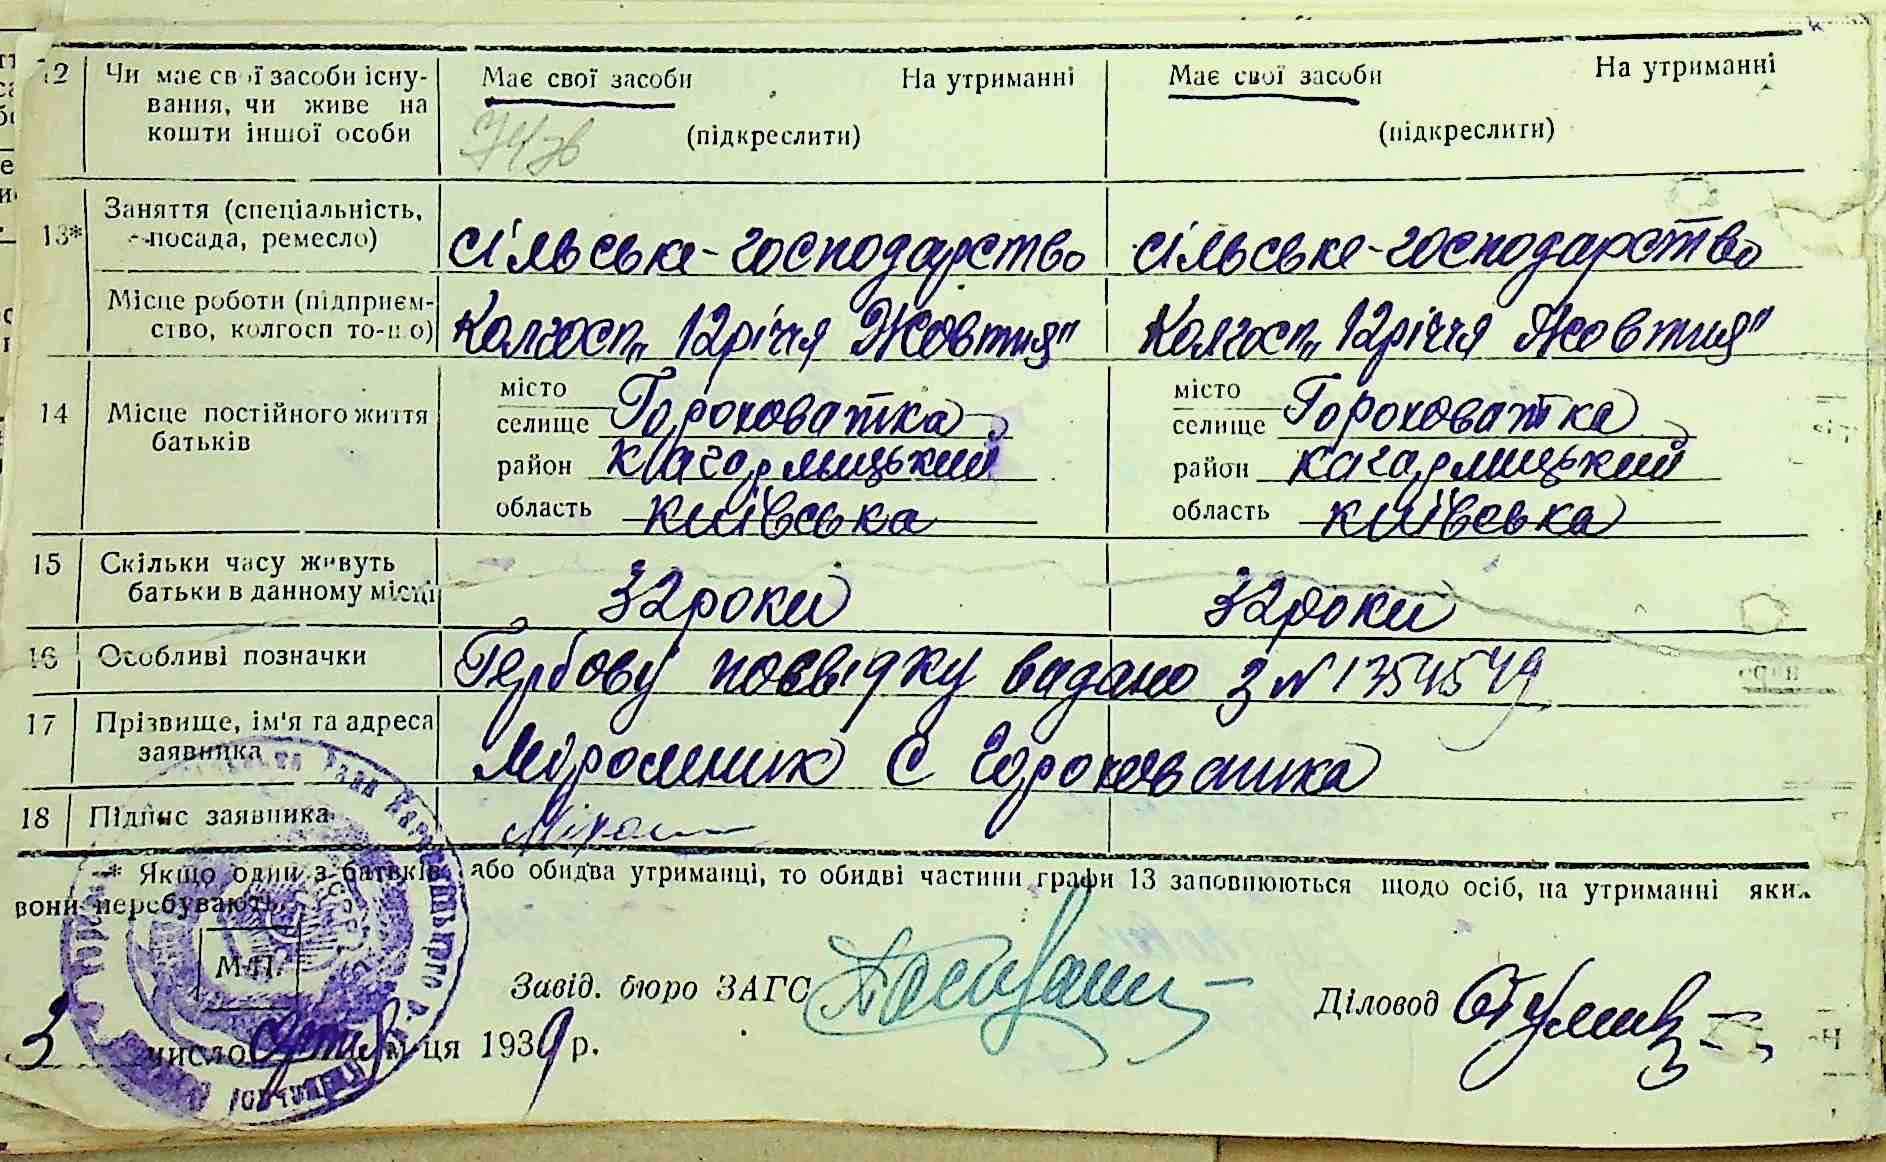 12 Чи має свої засоби існу- Має свої засоби На утриманні Має свої засоби На утриманні
вання, чи живе на
кошти іншої особи (підкреслити) (підкреслити)
13* Заняття (спеціальність,
посада, ремесло) сільське-господарство сільське-господарство
Місце роботи (підприєм-
ство, колгосп то-що) Колгосп „12річчя Жовтня" Колгосп „12річчя Жовтня"
14 Місце постійного життя
батьків
місто місто
селище Гороховатка селище Гороховатка
район Кагарлицький район Кагарлицький
область київська область київська
15 Скільки часу живуть
батьки в данному місці 32 роки 32 роки
16 Особливі позначки Гербову посвідку видано з № 1354549
17 Прізвище, ім'я та адреса
заявника С Гороховатка
18 Підпис заявника
* Якщо один з батьків або обидва утриманці, то обидві частини графи 13 заповнюються щодо осіб, на утриманні яких
вони перебувають.
М.П.
Завід. бюро ЗАГС Діловод
3 число м-ця 1939 р.